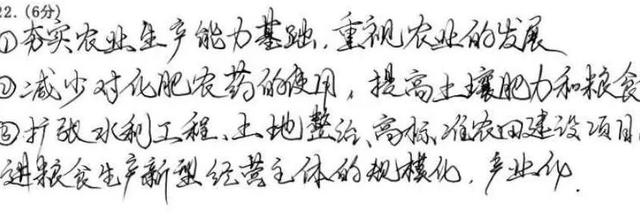 22.(6分)
①夯实农业生产能力基础,重视农业的发展
②减少对化肥农药的使用,提高土壤肥力和粮食
③扩张水利工程、土地整治、高标准农田建设项目
进粮食生产新型经营主体的规模化,产业化.